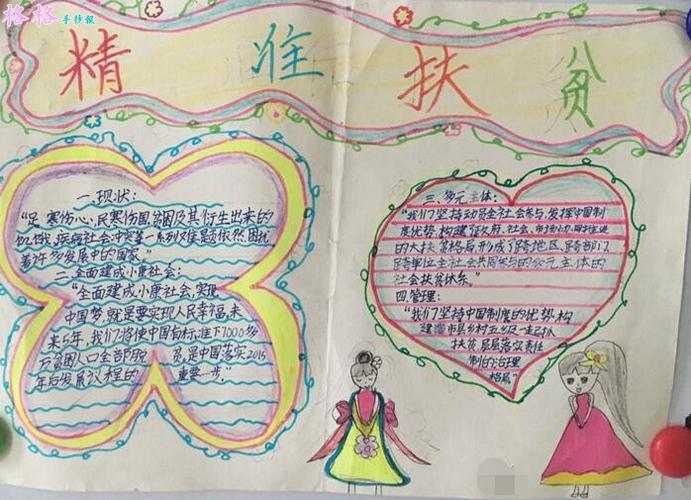 格格手抄報
精准扶贫
一.现状:
"足寒伤心,民寒伤国,贫困及其衍生出来的
饥饿、疾病、社会冲突等一系列难题依然困扰
着许多发展中的国家."
二.全面建成小康社会:
"全面建成小康社会,实现
中国梦,就是要实现人民幸福,未
来5年,我们将使中国有标准下7000多
万贫困人口全部脱贫,是中国落实2015
年后发展议程的重要一步."
三.多元主体:
"我们坚持动员全社会参与,发挥中国制
度优势,构建了政府、社会、市场
的大扶贫格局,形成了跨地区、跨部门、
跨单位全社会共同参与的多元主体的
社会扶贫体系.
四.管理:
"我们坚持中国制度的优势,构
建省市县乡村五级一起抓
扶贫,层层落实责任
制的治理
格局."